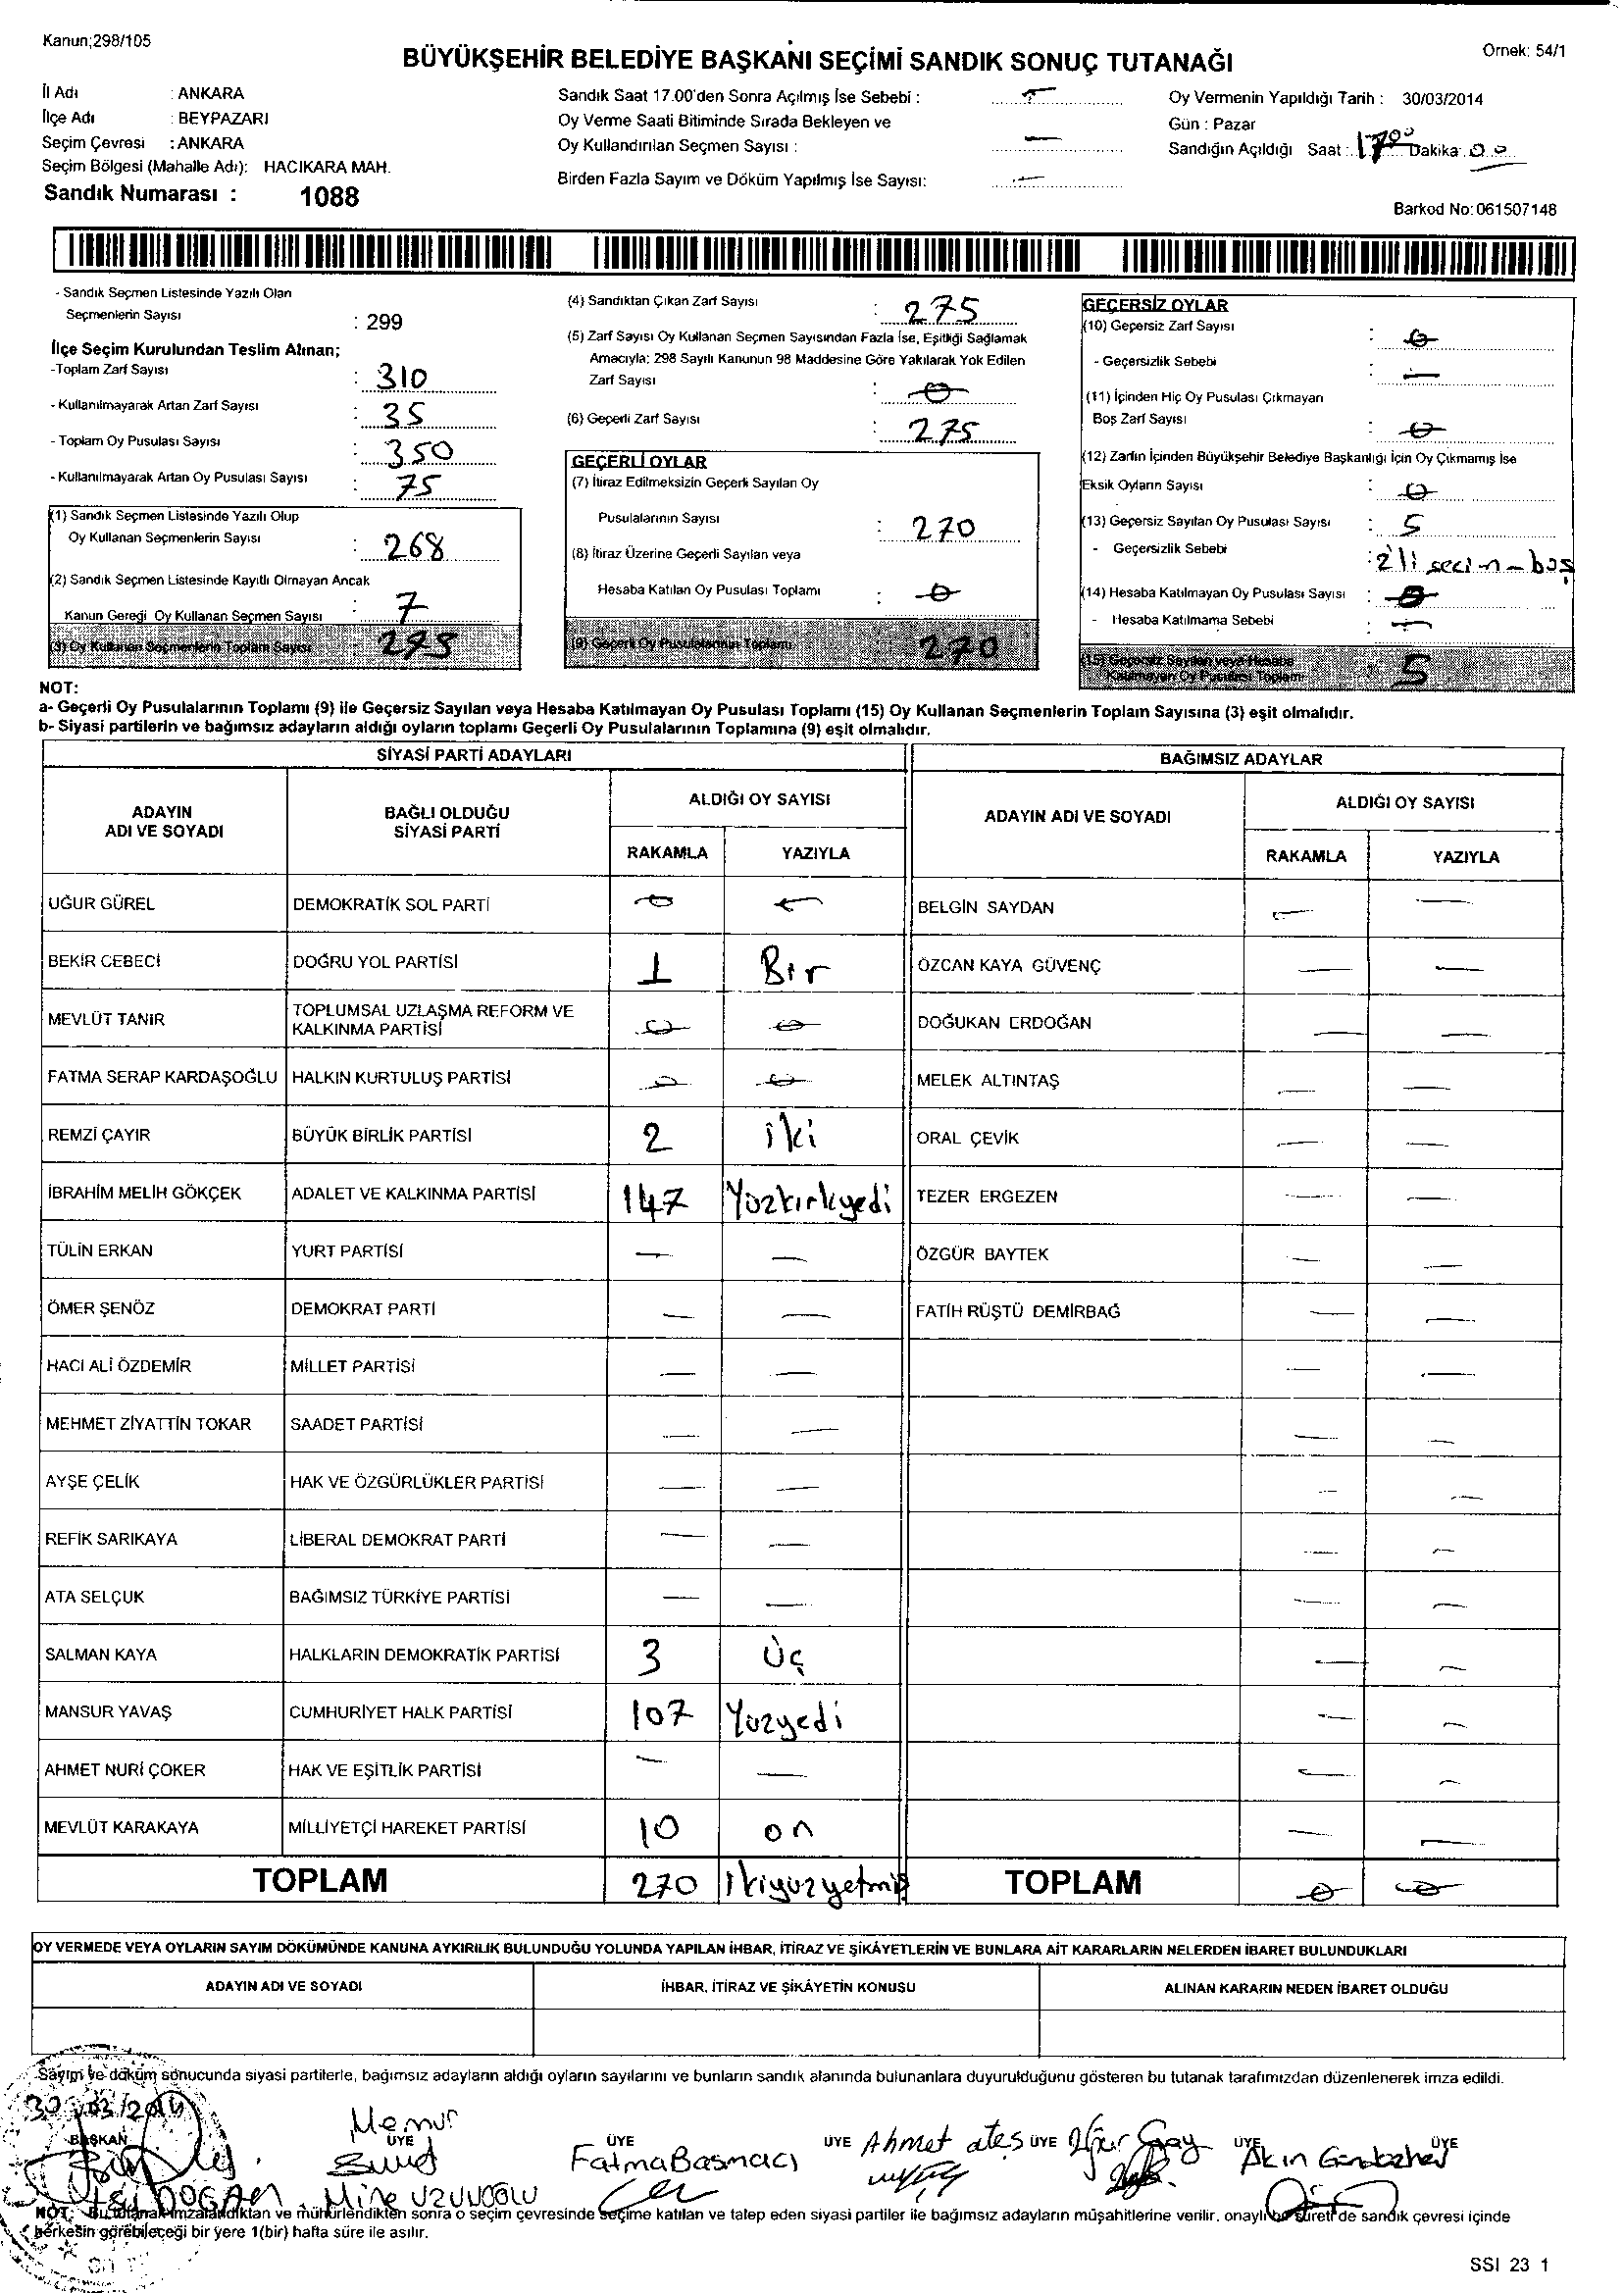 Kanun;298/105
Örnek: 54/1
BÜYÜKŞEHİR BELEDİYE BAŞKANI SEÇİMİ SANDIK SONUÇ TUTANAĞI
İl Adı : ANKARA
İlçe Adı : BEYPAZARI
Seçim Çevresi : ANKARA
Seçim Bölgesi (Mahalle Adı): HACIKARA MAH.
Sandık Numarası : 1088
Sandık Saat 17.00'den Sonra Açılmış İse Sebebi : —
Oy Verme Saati Bitiminde Sırada Bekleyen ve
Oy Kullandırılan Seçmen Sayısı : —
Birden Fazla Sayım ve Döküm Yapılmış İse Sayısı: —
Oy Vermenin Yapıldığı Tarih : 30/03/2014
Gün : Pazar
Sandığın Açıldığı Saat : 17 00 Dakika 00
Barkod No: 061507148
- Sandık Seçmen Listesinde Yazılı Olan
Seçmenlerin Sayısı : 299
İlçe Seçim Kurulundan Teslim Alınan;
-Toplam Zarf Sayısı : 310
- Kullanılmayarak Artan Zarf Sayısı : 35
- Toplam Oy Pusulası Sayısı : 350
- Kullanılmayarak Artan Oy Pusulası Sayısı : 75
(1) Sandık Seçmen Listesinde Yazılı Olup
Oy Kullanan Seçmenlerin Sayısı : 268
(2) Sandık Seçmen Listesinde Kayıtlı Olmayan Ancak
Kanun Gereği Oy Kullanan Seçmen Sayısı : 7
(3) Oy Kullanan Seçmenlerin Toplam Sayısı : 275
(4) Sandıktan Çıkan Zarf Sayısı : 275
(5) Zarf Sayısı Oy Kullanan Seçmen Sayısından Fazla İse, Eşitliği Sağlamak
Amacıyla; 298 Sayılı Kanunun 98 Maddesine Göre Yakılarak Yok Edilen
Zarf Sayısı : 0
(6) Geçerli Zarf Sayısı : 275
GEÇERLİ OYLAR
(7) İtiraz Edilmeksizin Geçerli Sayılan Oy
Pusulalarının Sayısı : 270
(8) İtiraz Üzerine Geçerli Sayılan veya
Hesaba Katılan Oy Pusulası Toplamı : 0
(9) Geçerli Oy Pusulalarının Toplamı 270
GEÇERSİZ OYLAR
(10) Geçersiz Zarf Sayısı : 0
- Geçersizlik Sebebi : —
(11) İçinden Hiç Oy Pusulası Çıkmayan
Boş Zarf Sayısı : 0
(12) Zarfın İçinden Büyükşehir Belediye Başkanlığı İçin Oy Çıkmamış İse
Eksik Oyların Sayısı : 0
(13) Geçersiz Sayılan Oy Pusulası Sayısı : 5
- Geçersizlik Sebebi : 2'li secim - boş
(14) Hesaba Katılmayan Oy Pusulası Sayısı : 0
- Hesaba Katılmama Sebebi : —
(15) Geçersiz Sayılan veya Hesaba
Katılmayan Oy Pusulası Toplamı 5
NOT:
a- Geçerli Oy Pusulalarının Toplamı (9) ile Geçersiz Sayılan veya Hesaba Katılmayan Oy Pusulası Toplamı (15) Oy Kullanan Seçmenlerin Toplam Sayısına (3) eşit olmalıdır.
b- Siyasi partilerin ve bağımsız adayların aldığı oyların toplamı Geçerli Oy Pusulalarının Toplamına (9) eşit olmalıdır.
SİYASİ PARTİ ADAYLARI BAĞIMSIZ ADAYLAR
ADAYIN ADI VE SOYADI BAĞLI OLDUĞU SİYASİ PARTİ ALDIĞI OY SAYISI ADAYIN ADI VE SOYADI ALDIĞI OY SAYISI
RAKAMLA YAZIYLA RAKAMLA YAZIYLA
UĞUR GÜREL DEMOKRATİK SOL PARTİ 0 — BELGİN SAYDAN — —
BEKİR CEBECİ DOĞRU YOL PARTİSİ 1 Bir ÖZCAN KAYA GÜVENÇ — —
MEVLÜT TANIR TOPLUMSAL UZLAŞMA REFORM VE KALKINMA PARTİSİ 0 0 DOĞUKAN ERDOĞAN — —
FATMA SERAP KARDAŞOĞLU HALKIN KURTULUŞ PARTİSİ 0 0 MELEK ALTINTAŞ — —
REMZİ ÇAYIR BÜYÜK BİRLİK PARTİSİ 2 iki ORAL ÇEVİK — —
İBRAHİM MELİH GÖKÇEK ADALET VE KALKINMA PARTİSİ 147 Yüzkırkyedi TEZER ERGEZEN — —
TÜLİN ERKAN YURT PARTİSİ — — ÖZGÜR BAYTEK — —
ÖMER ŞENÖZ DEMOKRAT PARTİ — — FATİH RÜŞTÜ DEMİRBAĞ — —
HACI ALİ ÖZDEMİR MİLLET PARTİSİ — — — —
MEHMET ZİYATTİN TOKAR SAADET PARTİSİ — — — —
AYŞE ÇELİK HAK VE ÖZGÜRLÜKLER PARTİSİ — — — —
REFİK SARIKAYA LİBERAL DEMOKRAT PARTİ — — — —
ATA SELÇUK BAĞIMSIZ TÜRKİYE PARTİSİ — — — —
SALMAN KAYA HALKLARIN DEMOKRATİK PARTİSİ 3 Üç — —
MANSUR YAVAŞ CUMHURİYET HALK PARTİSİ 107 Yüzyedi — —
AHMET NURİ ÇOKER HAK VE EŞİTLİK PARTİSİ — — — —
MEVLÜT KARAKAYA MİLLİYETÇİ HAREKET PARTİSİ 10 on — —
TOPLAM 270 ikiyüzyetmiş TOPLAM 0 0
OY VERMEDE VEYA OYLARIN SAYIM DÖKÜMÜNDE KANUNA AYKIRILIK BULUNDUĞU YOLUNDA YAPILAN İHBAR, İTİRAZ VE ŞİKÂYETLERİN VE BUNLARA AİT KARARLARIN NELERDEN İBARET BULUNDUKLARI
ADAYIN ADI VE SOYADI İHBAR, İTİRAZ VE ŞİKÂYETİN KONUSU ALINAN KARARIN NEDEN İBARET OLDUĞU
Sayım ve döküm sonucunda siyasi partilerle, bağımsız adayların aldığı oyların sayılarını ve bunların sandık alanında bulunanlara duyurulduğunu gösteren bu tutanak tarafımızdan düzenlenerek imza edildi.
30/03/2014
Memur
BAŞKAN ÜYE ÜYE ÜYE Ahmet ateş ÜYE Uğur ÜYE Akın ÜYE
Fatma Basmacı
DOĞAN Mine UZUNOĞLU
NOT: Bu tutanak imzalandıktan ve mühürlendikten sonra o seçim çevresinde seçime katılan ve talep eden siyasi partiler ile bağımsız adayların müşahitlerine verilir, onaylı bir sureti de sandık çevresi içinde
herkesin görebileceği bir yere 1(bir) hafta süre ile asılır.
SSI 23 1